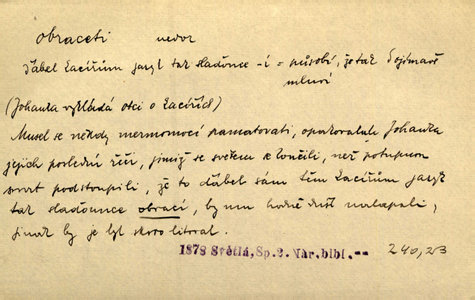 obraceti nedok
ďábel kacířům jazyk tak sladounce -í = působí, že tak dojímavě
mluví
(Johanka vykládá otci o kacířích)
Musel se někdy mermomocí pamatovati, opakovala Johanka
jejich poslední řeči, jimiž se světem se loučili, než potupnou
smrt podstoupili, že to ďábel sám těm kacířům jazyk
tak sladounce obrací, by mu hodně duší nalapali,
jinak by je byl skoro litoval.
1878 Světlá, Sp. 2. Nár. bibl. -- 240, 23